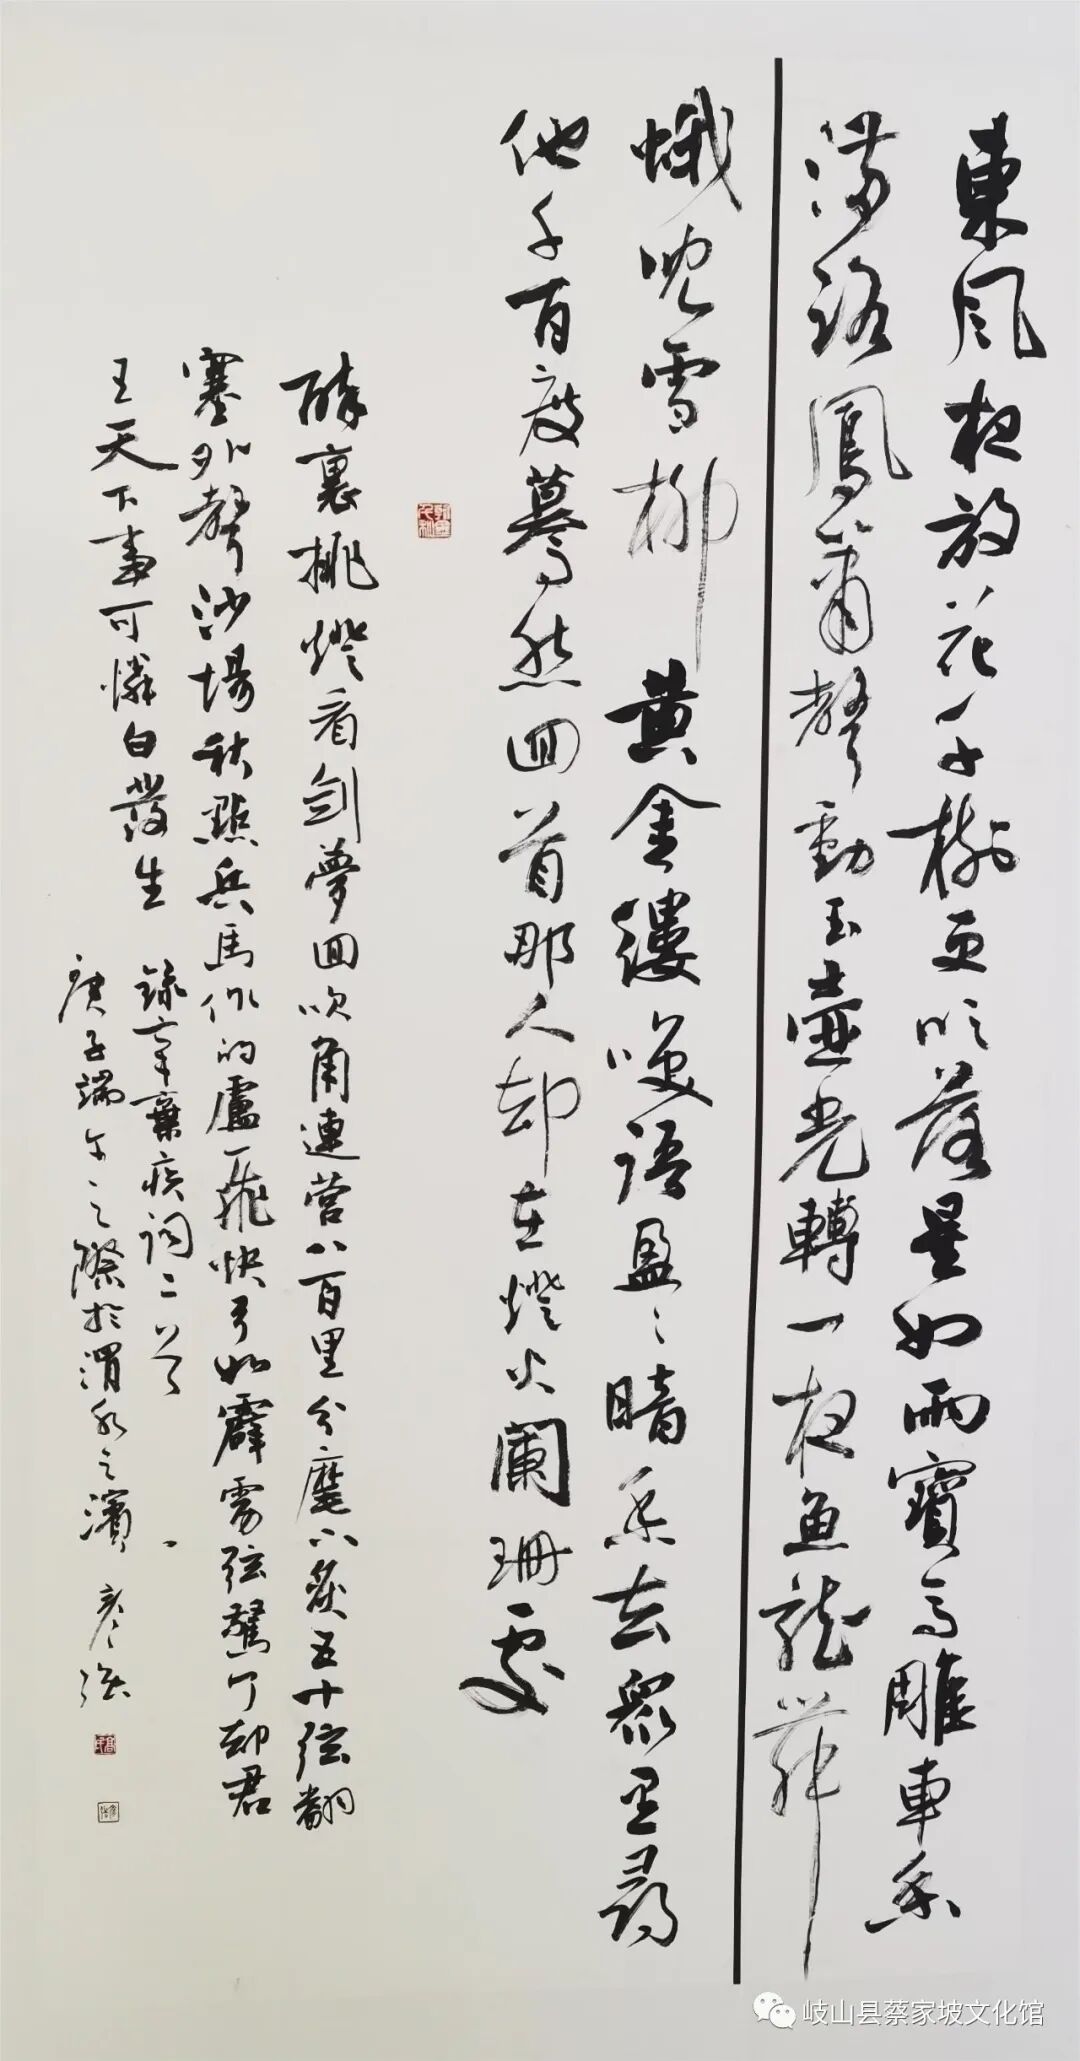 東風夜放花千樹更吹落星如雨寶馬雕車香
滿路鳳簫聲動玉壺光轉一夜魚龍舞
蛾兒雪柳黃金縷笑語盈〻暗香去眾里尋
他千百度驀然回首那人却在燈火闌珊處
醉裏挑燈看劍夢回吹角連營八百里分麾下炙五十弦翻
塞外聲沙場秋點兵馬作的盧飛快弓如霹雳弦驚了却君
王天下事可憐白發生
錄辛棄疾詞二首
庚子端午之際於渭水之濱 彦強
岐山县蔡家坡文化馆